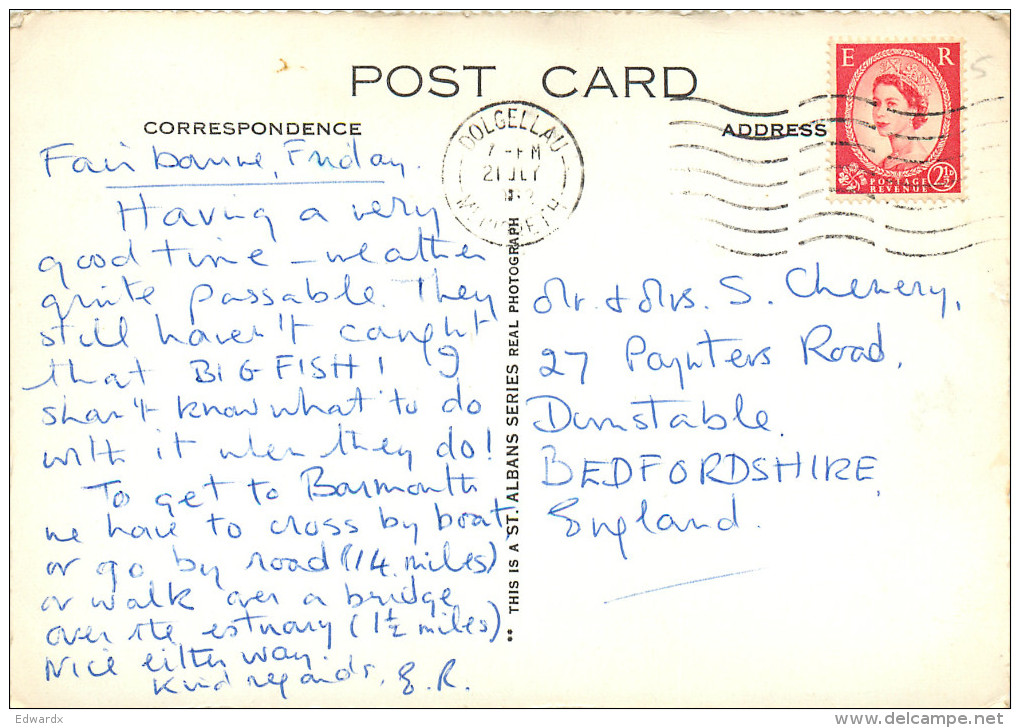 POST CARD
CORRESPONDENCE
ADDRESS
E R
POSTAGE
REVENUE
2½D
DOLGELLAU
7-PM
21 JLY
Fairbourne, Friday.
Having a very
good time - weather
quite passable. They
still haven't caught
that BIG FISH! I
shan't know what to do
with it when they do!
To get to Barmouth
we have to cross by boat,
or go by road (14 miles)
or walk over a bridge
over the estuary (1½ miles)
Nice either way.
Kind regards, E.R.
THIS IS A ST. ALBANS SERIES REAL PHOTOGRAPH
Mr. & Mrs. S. Chenery,
27 Paynters Road,
Dunstable.
BEDFORDSHIRE,
England.
5
Edwardx
delcampe.net